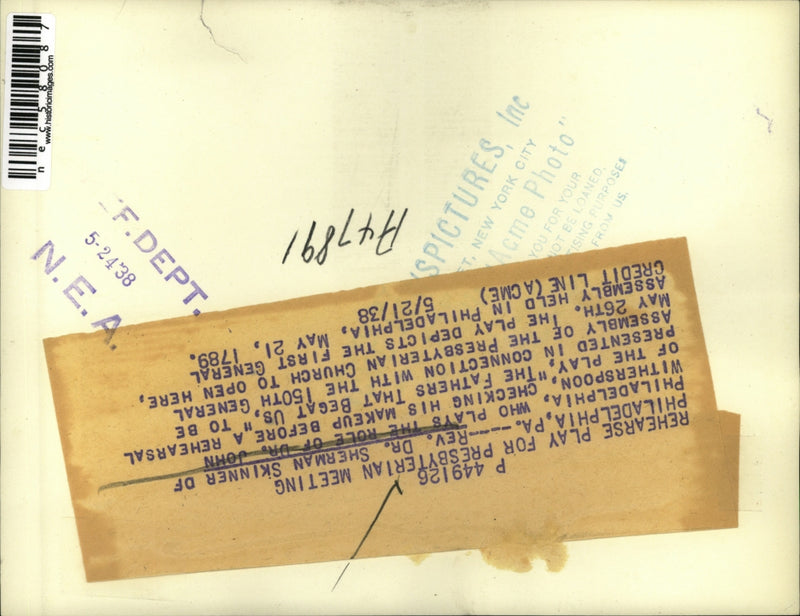 nec58087
www.historicimages.com
SPICTURES, Inc
ST, NEW YORK CITY
Acme Photo"
YOU FOR YOUR
NOT BE LOANED,
ISING PURPOSES
FROM US.
F. DEPT.
5-24-38
N. E. A.
A47891
P 449126
REHEARSE PLAY FOR PRESBYTERIAN MEETING
PHILADELPHIA, PA.----REV. DR. SHERMAN SKINNER OF
PHILADELPHIA, WHO PLAYS THE ROLE OF DR. JOHN
WITHERSPOON, CHECKING HIS MAKEUP BEFORE A REHEARSAL
OF THE PLAY, "THE FATHERS THAT BEGAT US," TO BE
PRESENTED IN CONNECTION WITH THE 150TH GENERAL
ASSEMBLY OF THE PRESBYTERIAN CHURCH TO OPEN HERE,
MAY 26TH. THE PLAY DEPICTS THE FIRST GENERAL
ASSEMBLY HELD IN PHILADELPHIA, MAY 21, 1789.
CREDIT LINE (ACME) 5/21/38